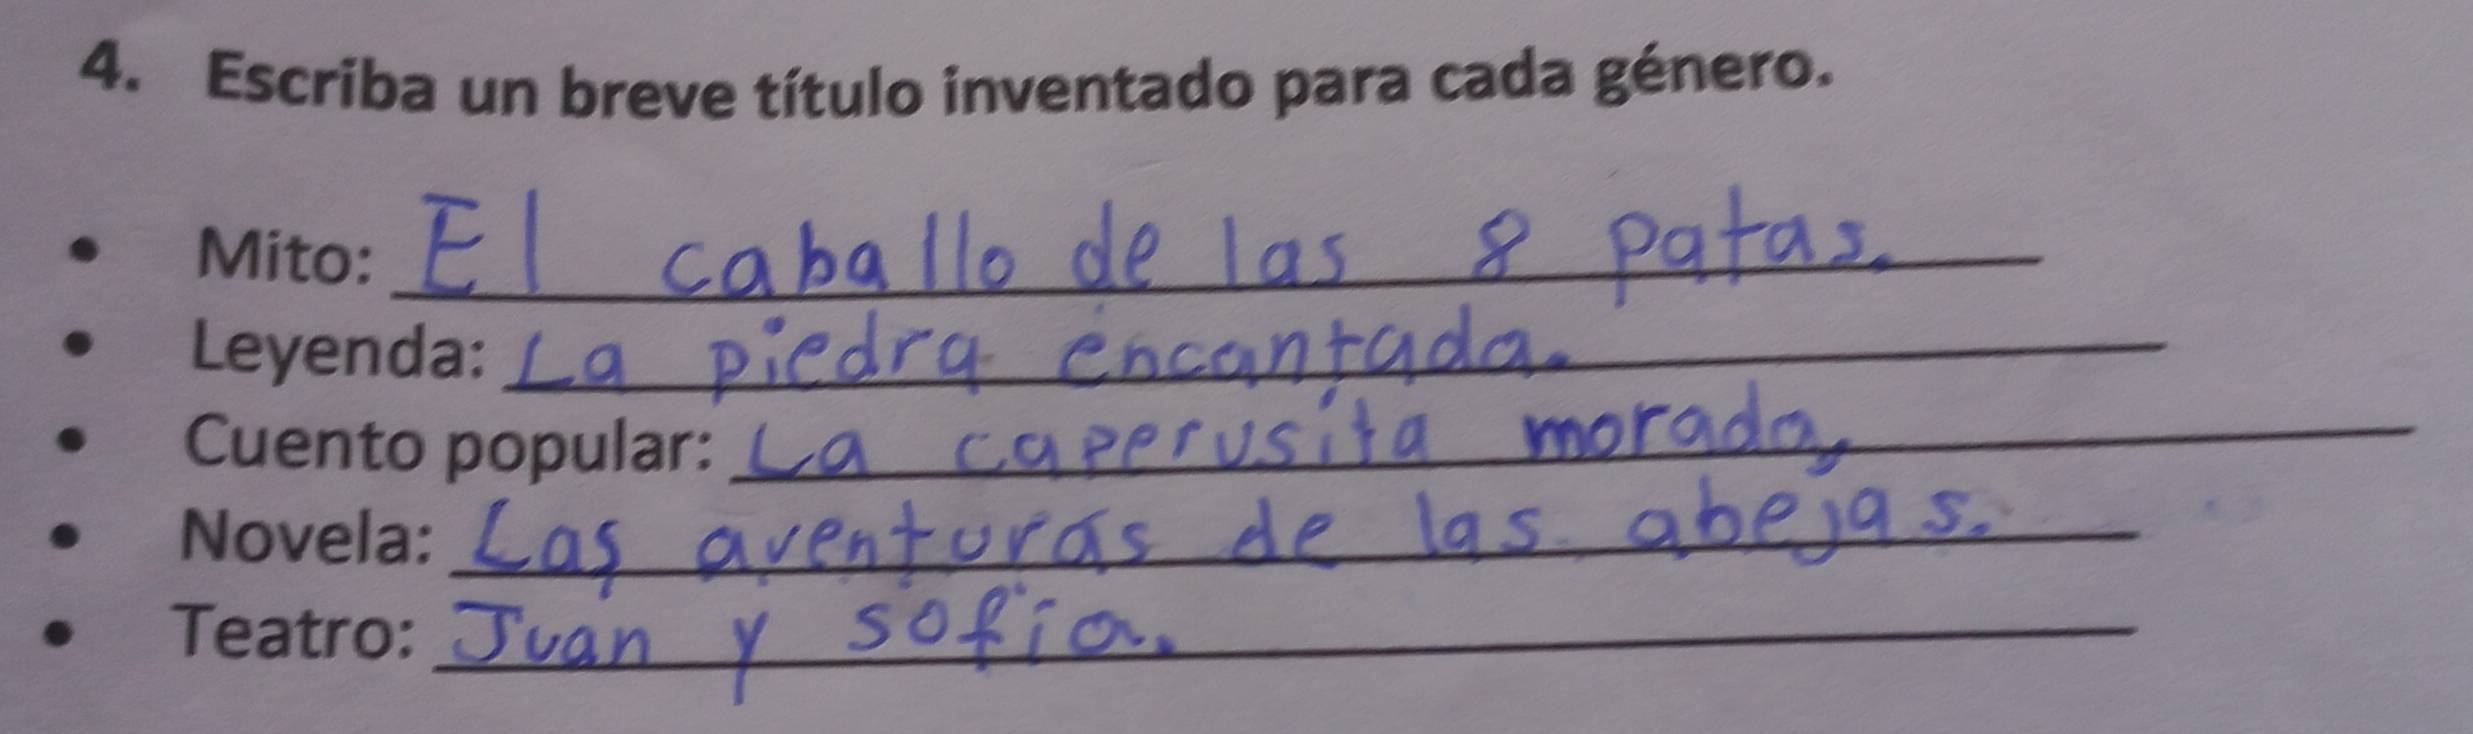 4. Escriba un breve título inventado para cada género.
• Mito: El caballo de las 8 patas.
• Leyenda: La piedra encantada.
• Cuento popular: La caperusita morada,
• Novela: Las aventuras de las abejas.
• Teatro: Juan y sofia.